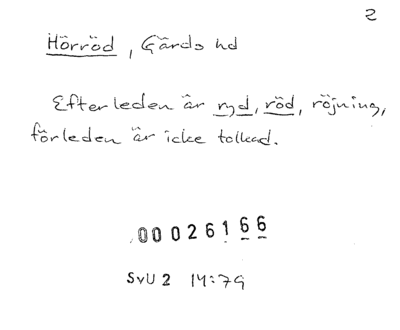 2
Hörröd, Gärds hd
Efterleden är ryd, röd, röjning,
förleden är icke tolkad.
00026166
SvU 2 14:79